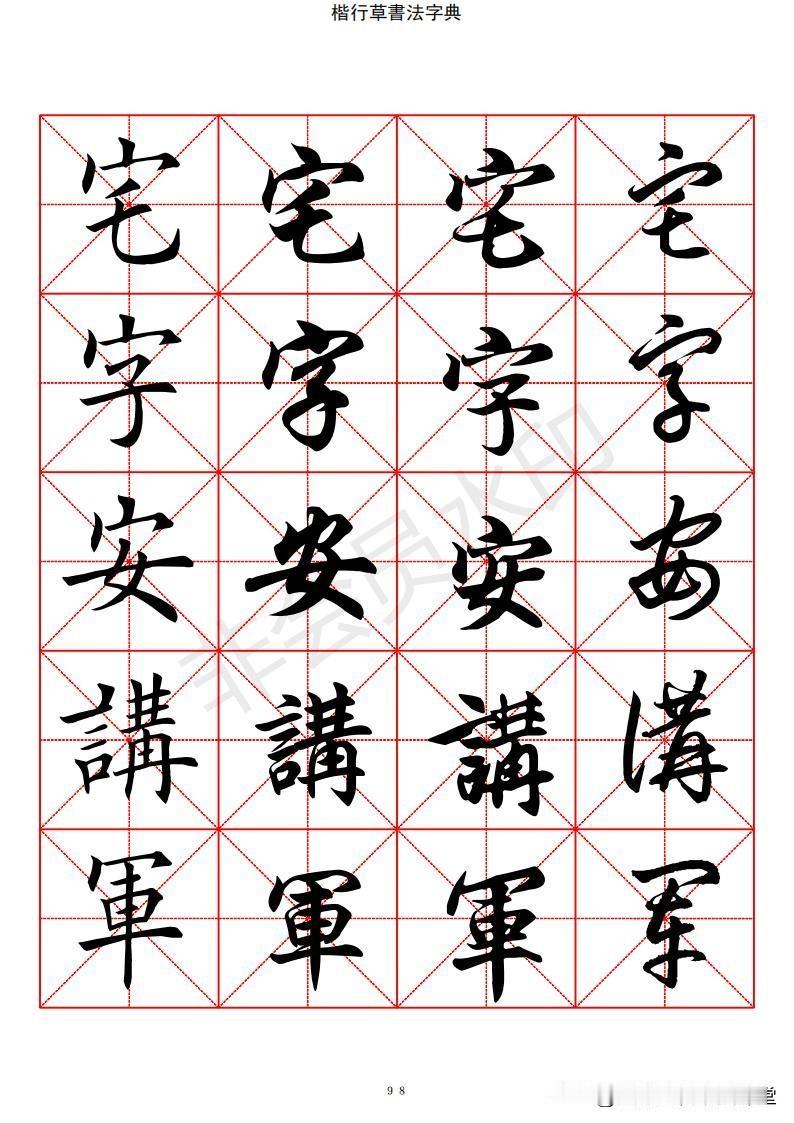 楷行草書法字典
宅 宅 宅 宅
字 字 字 字
安 安 安 安
講 講 講 講
軍 軍 軍 軍
非会员水印
98